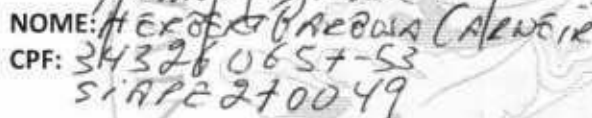 NOME: HERBERT BARBOSA CARNEIR
CPF: 343260657-53
SIAPE 270049